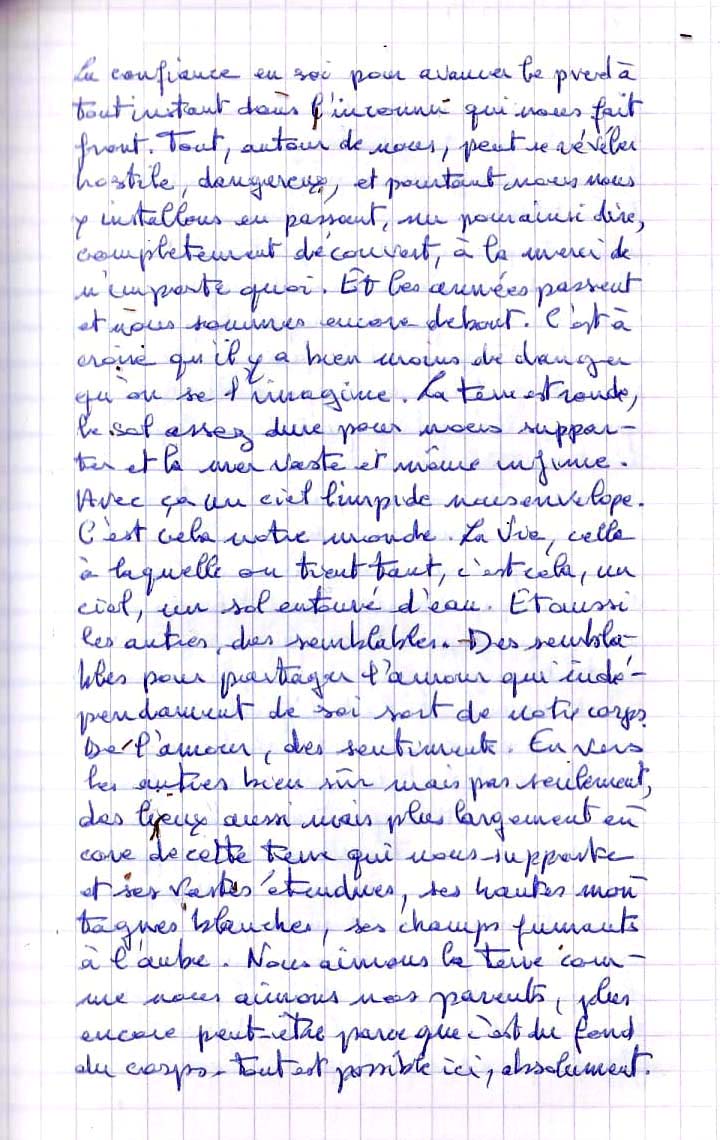 La confiance en soi pour avancer le pied à
tout instant dans l'inconnu qui nous fait
front. Tout, autour de nous, peut se révéler
hostile, dangereux, et pourtant nous nous
y installons en passant, nu pour ainsi dire,
complètement découvert, à la merci de
n'importe quoi. Et les années passent
et nous sommes encore debout. C'est à
croire qu'il y a bien moins de danger
qu'on se l'imagine. La terre est ronde,
le sol assez dure pour nous suppor-
ter et la mer vaste et même infime.
Avec ça un ciel limpide nous enveloppe.
C'est cela notre monde. La Vie, celle
à laquelle on tient tant, c'est cela, un
ciel, un sol entouré d'eau. Et aussi
les autres, des semblables. Des sembla-
bles pour partager l'amour qui indé-
pendament de soi sort de notre corps.
De l'amour, des sentiments. Envers
les autres bien sûr mais pas seulement,
des lieux aussi mais plus largement en
core de cette terre qui nous supporte
et ses vastes étendues, ses hautes mon
tagnes blanches, ses champs fumants
à l'aube. Nous aimons la terre com-
me nous aimons nos parents, plus
encore peut-être parce que c'est du fond
du corps. Tout est possible ici, absolument.